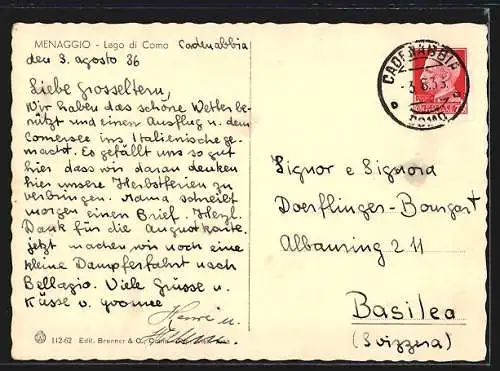 MENAGGIO - Lago di Como Cadenabbia
den 3. agosto 36
Liebe Grosseltern,
Wir haben das schöne Wetter be-
nützt und einen Ausflug n. dem
Comersee ins Italienische ge-
macht. Es gefällt uns so gut
hier dass wir daran denken
hier unsere Herbstferien zu
verbringen. Mama schreibt
morgen einen Brief. Herzl.
Dank für die Augustkarte.
jetzt machen wir noch eine
kleine Dampferfahrt nach
Bellagio. Viele Grüsse u.
Küsse v. Yvonne
u.
112-62 Edit. Brunner & C., Como
CADENABBIA
COMO
Signor e Signora
Doerflinger-Bomgart
Albanring 211
Basilea
(Svizzera)